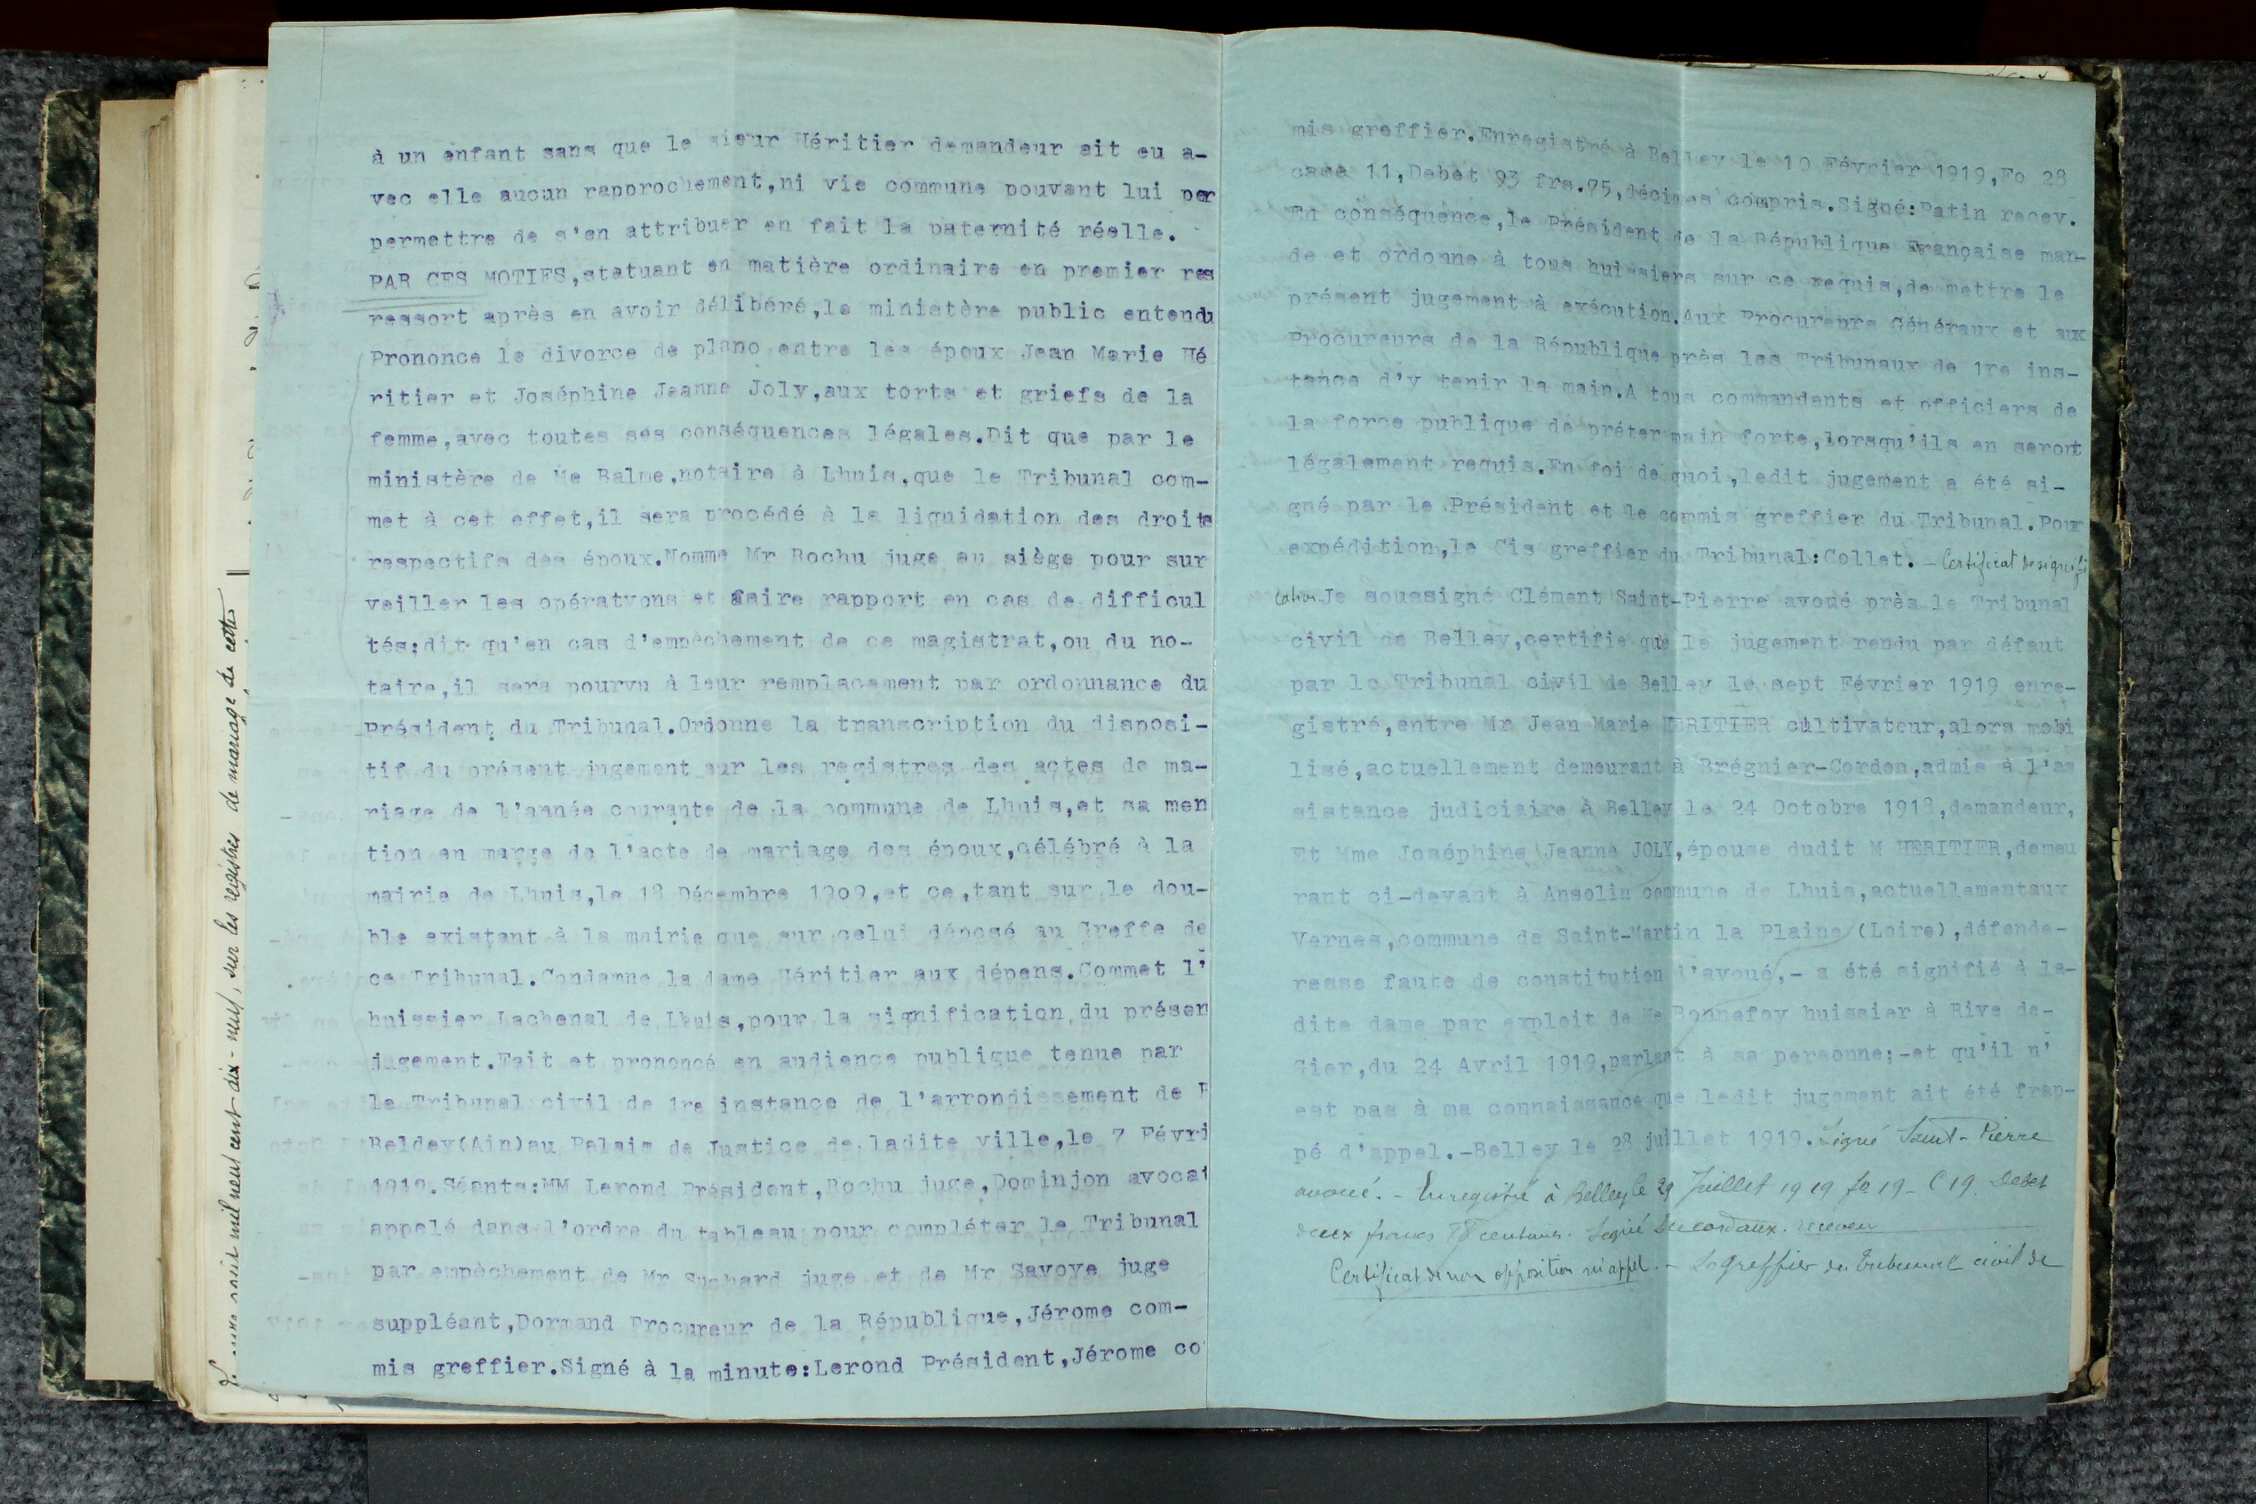 à un enfant sans que le sieur Héritier demandeur ait eu a-
vec elle aucun rapprochement,ni vie commune pouvant lui per
permettre de s'en attribuer en fait la paternité réelle.
PAR CES MOTIFS,statuant en matière ordinaire en premier res
ressort après en avoir délibéré,le ministère public entendu
Prononce le divorce de plano entre les époux Jean Marie Hé
ritier et Joséphine Jeanne Joly,aux torts et griefs de la
femme,avec toutes ses conséquences légales.Dit que par le
ministère de Me Balme,notaire à Lhuis,que le Tribunal com-
met à cet effet,il sera procédé à la liquidation des droits
respectifs des époux.Nomme Mr Rochu juge au siège pour sur
veiller les opératyons et faire rapport en cas de difficul
tés;dit qu'en cas d'empêchement de ce magistrat,ou du no-
taire,il sera pourvu à leur remplacement par ordonnance du
Président du Tribunal.Ordonne la transcription du disposi-
tif du présent jugement sur les registres des actes de ma-
riage de l'année courante de la commune de Lhuis,et sa men
tion en marge de l'acte de mariage des époux,célébré à la
mairie de Lhuis,le 18 Décembre 1909,et ce,tant sur le dou-
ble existant à la mairie que sur celui déposé au Greffe de
ce Tribunal.Condamne la dame Héritier aux dépens.Commet l'
huissier Lachenal de Lhuis,pour la signification du présen
jugement.Fait et prononcé en audience publique tenue par
le Tribunal civil de 1re instance de l'arrondissement de B
Beldey(Ain)au Palais de Justice de ladite ville,le 7 Févri
1919.Séants:MM Lerond Président,Rochu juge,Dominjon avocat
appelé dans l'ordre du tableau pour compléter le Tribunal
par empêchement de Mr Suchard juge et de Mr Savoye juge
suppléant,Dormand Procureur de la République,Jérome com-
mis greffier.Signé à la minute:Lerond Président,Jérome co
mis greffier.Enregistré à Belley le 10 Février 1919,Fo 28
case 11,Debet 93 frs.75,décimes compris.Signé:Patin recev.
En conséquence,le Président de la République Française man-
de et ordonne à tous huissiers sur ce requis,de mettre le
présent jugement à exécution.Aux Procureurs Généraux et aux
Procureurs de la République près les Tribunaux de 1re ins-
tance d'y tenir la main.A tous commandants et officiers de
la force publique de prêter main forte,lorsqu'ils en seront
légalement requis.En foi de quoi,ledit jugement a été si-
gné par le Président et le commis greffier du Tribunal.Pour
expédition,le Cis greffier du Tribunal:Collet. - Certificat de signifi
cation Je soussigné Clément Saint-Pierre avoué près le Tribunal
civil de Belley,certifie que le jugement rendu par défaut
par le Tribunal civil de Belley le sept Février 1919 enre-
gistré,entre Mr Jean Marie HERITIER cultivateur,alors mobi
lisé,actuellement demeurant à Brégnier-Cordon,admis à l'as
sistance judiciaire à Belley le 24 Octobre 1918,demandeur,
Et Mme Joséphine Jeanne JOLY,épouse dudit M HERITIER,demeu
rant ci-devant à Ansolin commune de Lhuis,actuellementaux
Vernes,commune de Saint-Martin la Plaine (Loire),défende-
resse faute de constitution d'avoué,- a été signifié à la-
dite dame par exploit de Me Bonnefoy huissier à Rive de-
Gier,du 24 Avril 1919,parlant à sa personne;-et qu'il n'
est pas à ma connaissance que ledit jugement ait été frap-
pé d'appel.-Belley le 28 juillet 1919. Signé Saint-Pierre
avoué. - Enregistré à Belley le 29 Juillet 1919 fo 19 - C 19. Debet
deux francs 78 centimes. Signé Ducordaux. receveur
Certificat de non opposition ni appel. - Le greffier du Tribunal civil de
mil neuf cent dix-neuf, sur les registres de mariage de cette